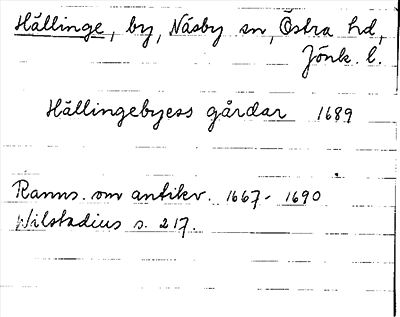 Hällinge, by, Näsby sn, Östra hd,
Jönk. l.
Hällingebyess gårdar 1689
Ranns. om antikv. 1667-1690
Wilstadius s. 217.